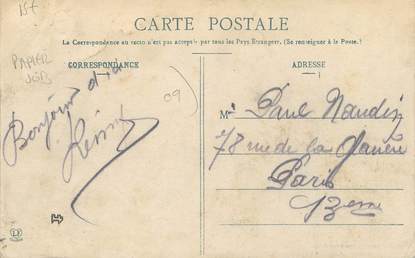 15f
CARTE POSTALE
La Correspondance au recto n'est pas acceptée par tous les Pays Etrangers. (Se renseigner à la Poste.)
CORRESPONDANCE
ADRESSE
PAPIER
JOB
Bonjour d'ici
Rémy
09
M Paul Naudin
78 rue de la
Paris
13eme